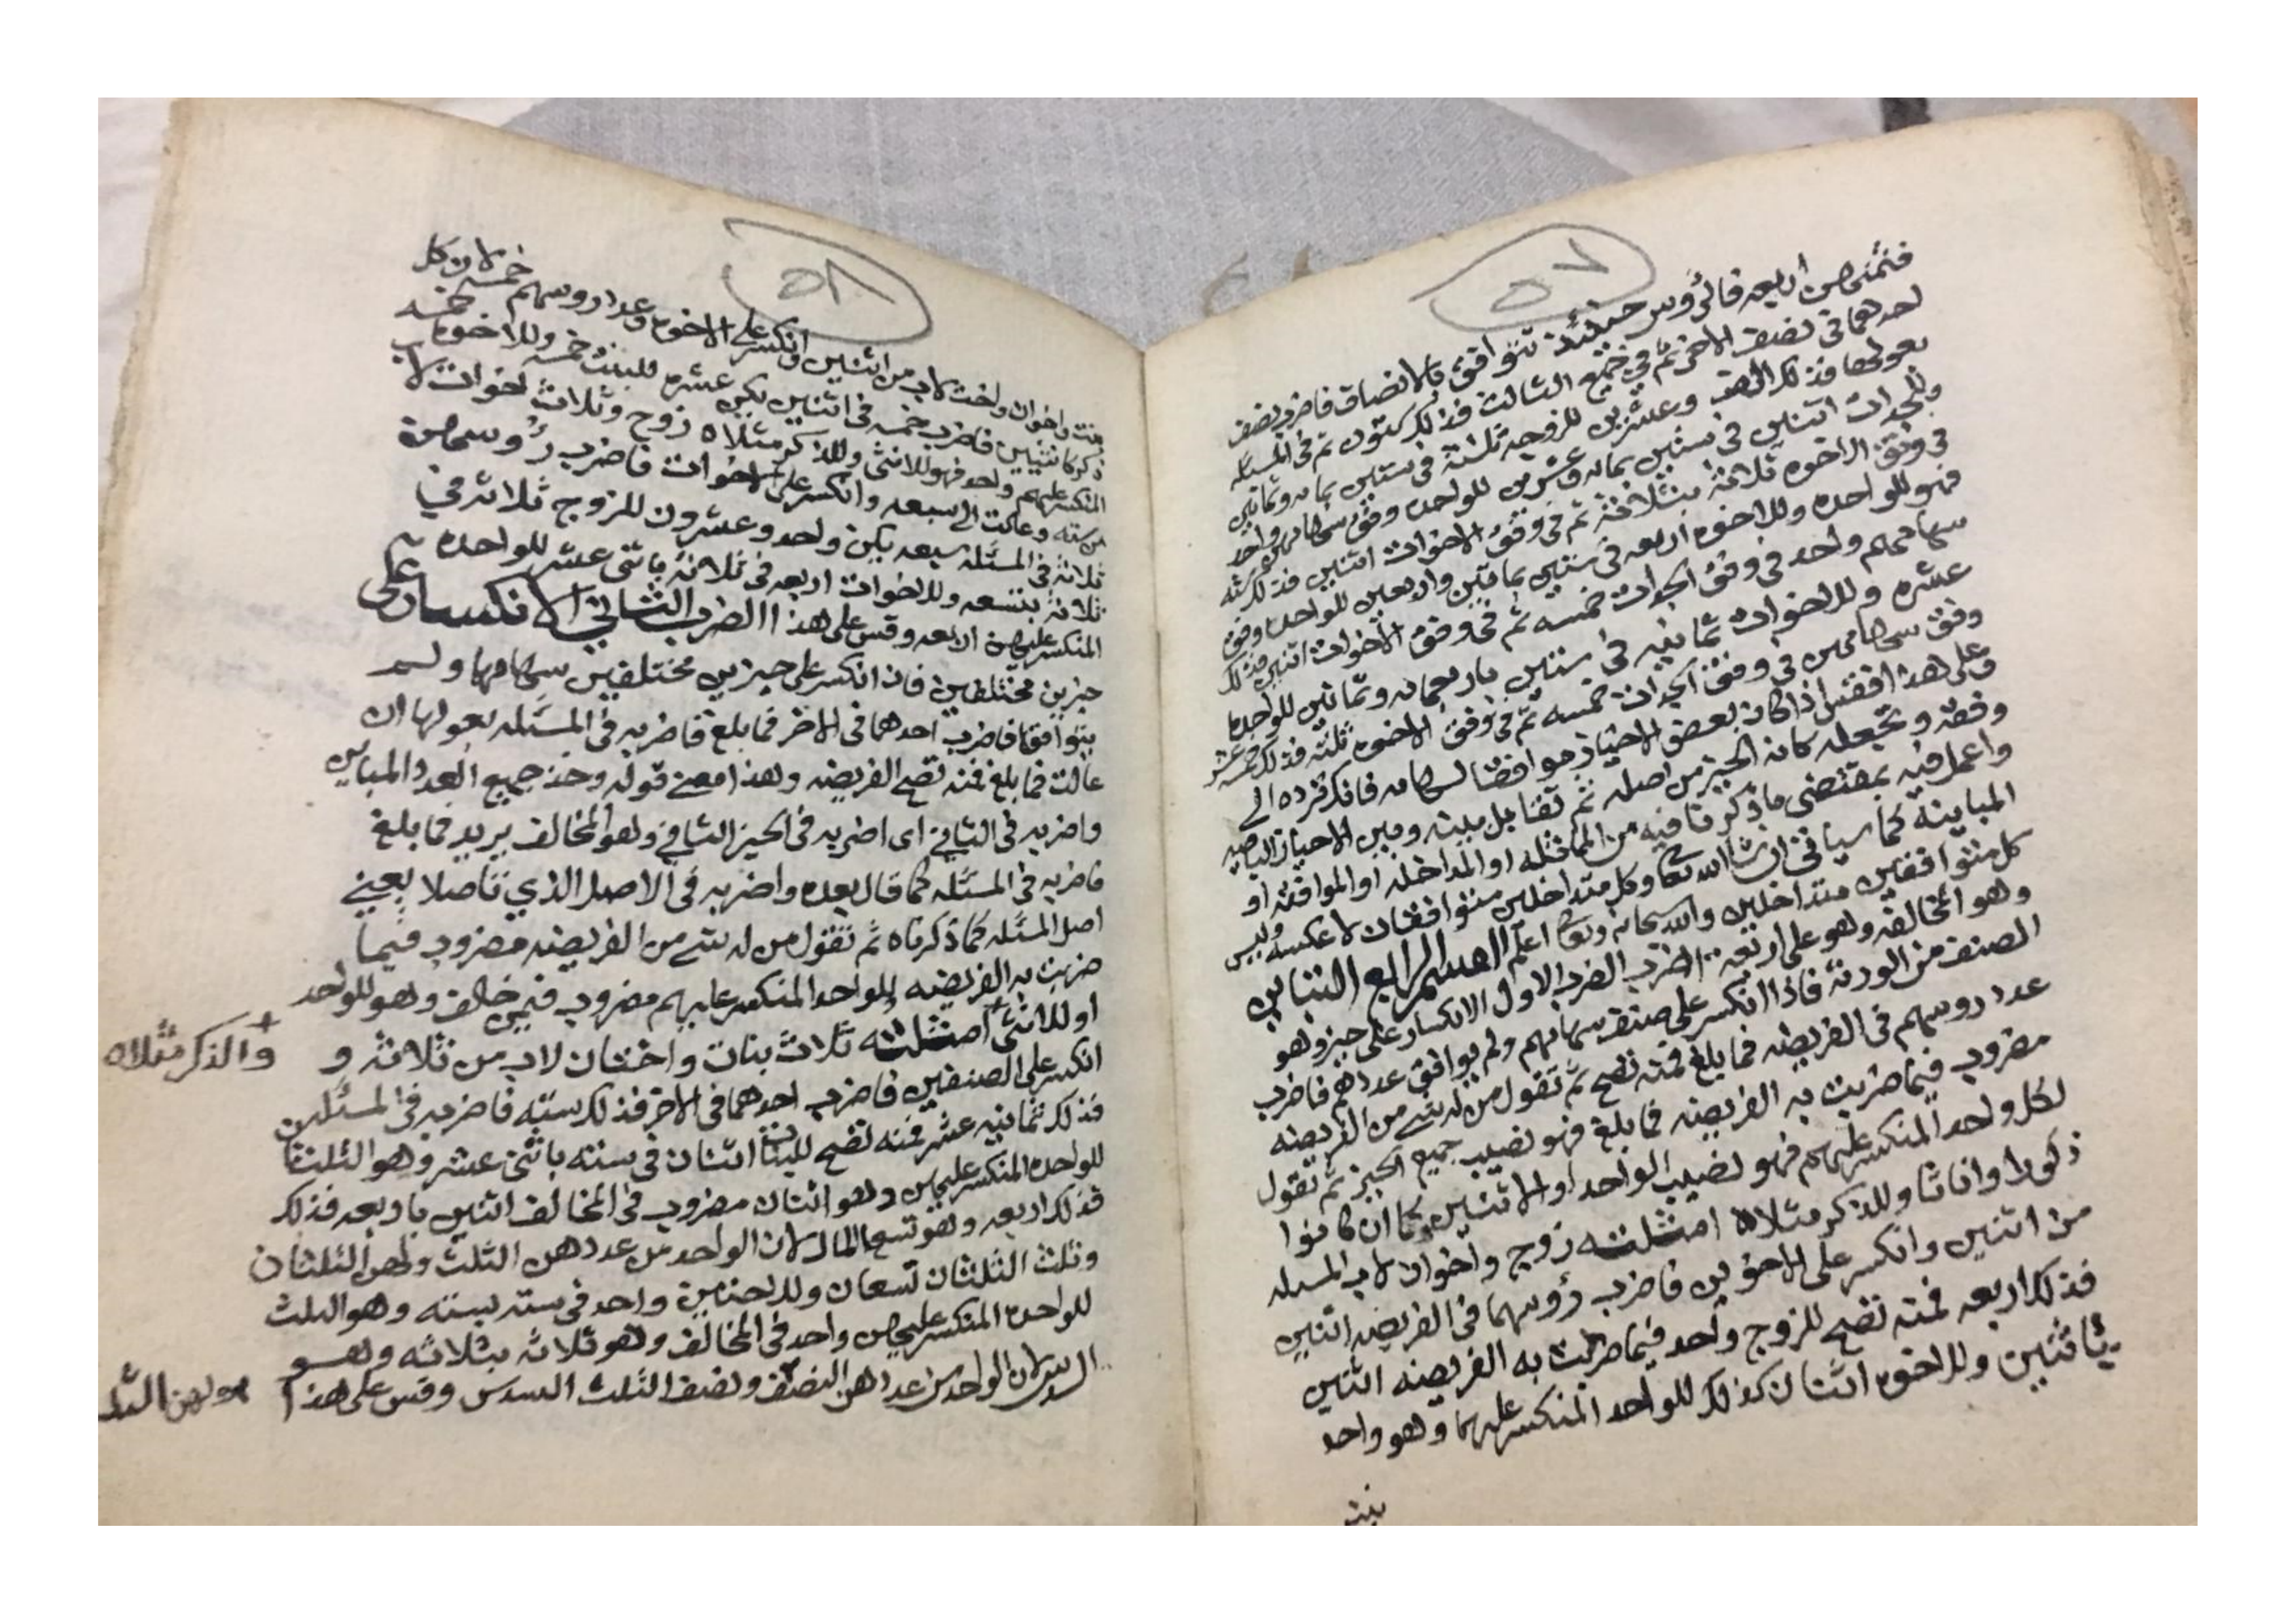 ٥٧
فثمنهن اربعه فالرؤوس حينئذ تتوافق بالانصاف فاضرب نصف
احدهما في نصف الاخر ثم في جميع الثالث فذلك ستون ثم في المسئله
بعولها فذلك الف وعشرين للزوجه ثلثة في ستين بمايه وثمانين
وللجدات اثنين في ستين بمايه وعشرين للواحده وفق سهامهن واحد
في وفق الاخوه ثلاثة بثلاثة ثم في وفق الاخوات اثنين فذلك سته
فهو للواحده وللاخوه اربعه في ستين بمايتين واربعين للواحد وفق
سهامهم واحد في وفق الجدات خمسه ثم في وفق الاخوات اثنين فذلك
عشره وللاخوات ثمانيه في ستين باربعمايه وثمانين للواحده
وفق سهامهن في وفق الجدات خمسه ثم في وفق الاخوه ثلثة فذلك خمسه عشر
وعلى هذا فقس اذا كان بعض الاحياز موافقا لسهامه فانك ترده الى
وفقه وتجعله كانه الحيز من اصله ثم تقابل بينه وبين الاحياز الباقيه
واعمل فيه بمقتضى ما ذكرنا فيه من المماثله او المداخله او الموافقه او
المباينه كما سياتي ان شا الله تعا وكل متداخلين متوافقان لا عكسه وليس
كل متوافقين متداخلين والله سبحانه وتعا اعلم القسم الرابع التباين
وهو المخالفه وهو على اربعه اضرب الضرب الاول الانكسار على حيز وهو
الصنف من الورثه فاذا انكسر على صنف سهامهم ولم يوافق عددهم فاضرب
عدد روسهم في الفريضه فما بلغ فمنه تصح ثم تقول من له شي من الفريضه
مضروب فيما ضربت به الفريضه فما بلغ فهو نصيب جميع الحيز ثم تقول
لكل واحد المنكسر عليهم فهو نصيب الواحد او الاثنين كما ان كانوا
ذكورا واناثا وللذكر مثلاه امثلته زوج واخوان لاب المسئله
من اثنين وانكسر على الاخوين فاضرب رؤسهما في الفريضه اثنين
فذلك اربعه فمنه تصح للزوج واحد فيما ضربت به الفريضه اثنين
باثنين وللاخوه اثنان كذلك للواحد المنكسر عليهما وهو واحد
بنت
٥٨
بنت واخوان واخت لاب من اثنين وانكسر على الاخوه وعدد روسهم خمسه لان كل
ذكر كانثيين فاضرب خمسه في اثنين يكن عشره للبنت خمسه وللاخوه خمسه
المنكسر عليهم واحد فهو للانثى وللذكر مثلاه زوج وثلاث اخوات لاب
من سته وعالت الى سبعه وانكسر على الاخوات فاضرب رؤوسهن
ثلاثة في المسئله سبعه يكن واحد وعشرون للزوج ثلاثه في
ثلاثة بتسعه وللاخوات اربعه في ثلاثة باثني عشر للواحده
المنكسر عليهن الاربعه وقس على هذا الضرب الثاني الانكسار على
حيزين مختلفين فاذا انكسر على حيزين مختلفين سهامها ولم
يتوافقا فاضرب احدهما في الاخر فما بلغ فاضربه في المسئله بعولها ان
عالت فما بلغ فمنه تصح الفريضه وهذا معنى قوله وخذ جميع العدد المباين
واضربه في الثاني اى اضربه في الحيز الثاني وهو المخالف يريد فما بلغ
فاضربه في المسئله كما قال بعده واضربه في الاصل الذي تاصلا يعني
اصل المسئله كما ذكرناه ثم تقول من له شي من الفريضه مضروب فيما
ضربت به الفريضه وللواحد المنكسر عليهم مضروب فيمن خالف وهو للواحد
او للانثى امثلته ثلاث بنات واختان لاب من ثلاثة و
والذكر مثلاه
انكسر على الصنفين فاضرب احدهما في الاخر فذلك سته فاضربه في المسئله
فذلك ثمانيه عشر فمنه تصح للبنات اثنان في سته باثني عشر وهو الثلثان
للواحده المنكسر عليهن وهو اثنان مضروب في المخالف اثنين باربعه فذلك
فذلك اربعه وهو تسعا المال لان الواحد من عددهن الثلث ولهن الثلثان
وثلث الثلثان تسعان وللاختين واحد في سته بسته وهو الثلث
للواحده المنكسر عليهن واحد في المخالف وهو ثلاثه بثلاثه وهو
السدس لان الواحد من عددهن النصف ونصف الثلث السدس وقس على هذا
ولهن